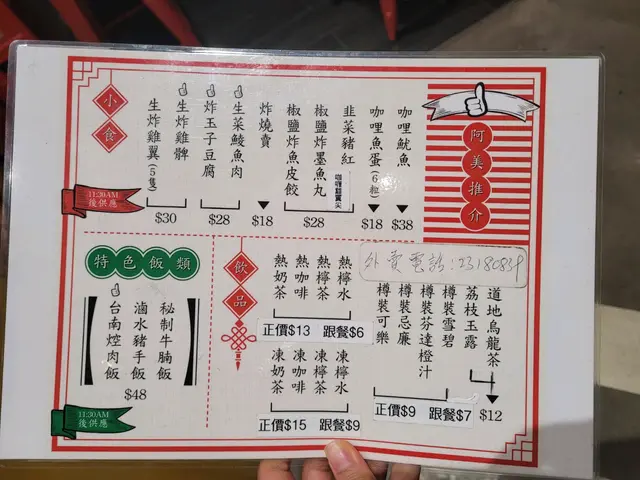 小食
11:30AM
後供應
生炸雞翼(5隻)
生炸雞髀
$30
炸玉子豆腐
生菜鯪魚肉
$28
炸燒賣
$18
椒鹽炸魚皮餃
椒鹽炸墨魚丸
韭菜豬紅
$28
咖哩魚蛋(6粒)
$18
咖哩魷魚
$38
阿美推介
特色飯類
台南焢肉飯
滷水豬手飯
秘制牛腩飯
$48
11:30AM
後供應
飲品
熱奶茶
熱咖啡
熱檸茶
熱檸水
正價$13 跟餐$6
凍奶茶
凍咖啡
凍檸茶
凍檸水
正價$15 跟餐$9
外賣電話:23180839
樽裝可樂
樽裝忌廉
樽裝芬達橙汁
樽裝雪碧
正價$9 跟餐$7
荔枝玉露
道地烏龍茶
$12